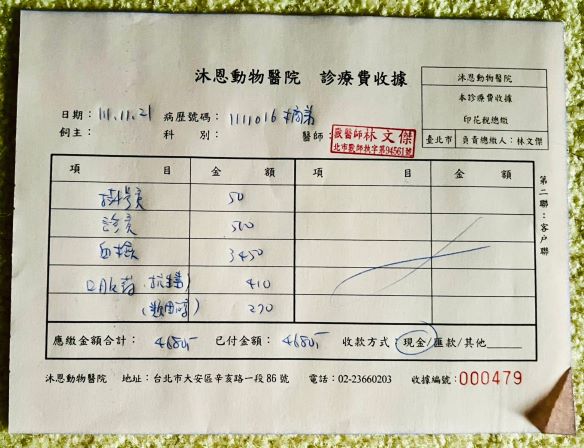 沐恩動物醫院 診療費收據
沐恩動物醫院
本診療費收據
印花稅總繳
臺北市 負責總繳人：林文傑
日期：111.11.21 病歷號碼：1111016
飼主： 科 別： 醫師：
獸醫師 林文傑
北市獸師執字第94561號
項 目 金 額 項 目 金 額
掛號費 50
診費 500
血檢 3450
口服葯(抗生素) 410
270
應繳金額合計： 4680.- 已付金額： 4680.- 收款方式：現金/匯款/其他
第二聯：客戶聯
沐恩動物醫院 地址：台北市大安區辛亥路一段86號 電話：02-23660203 收據編號：000479